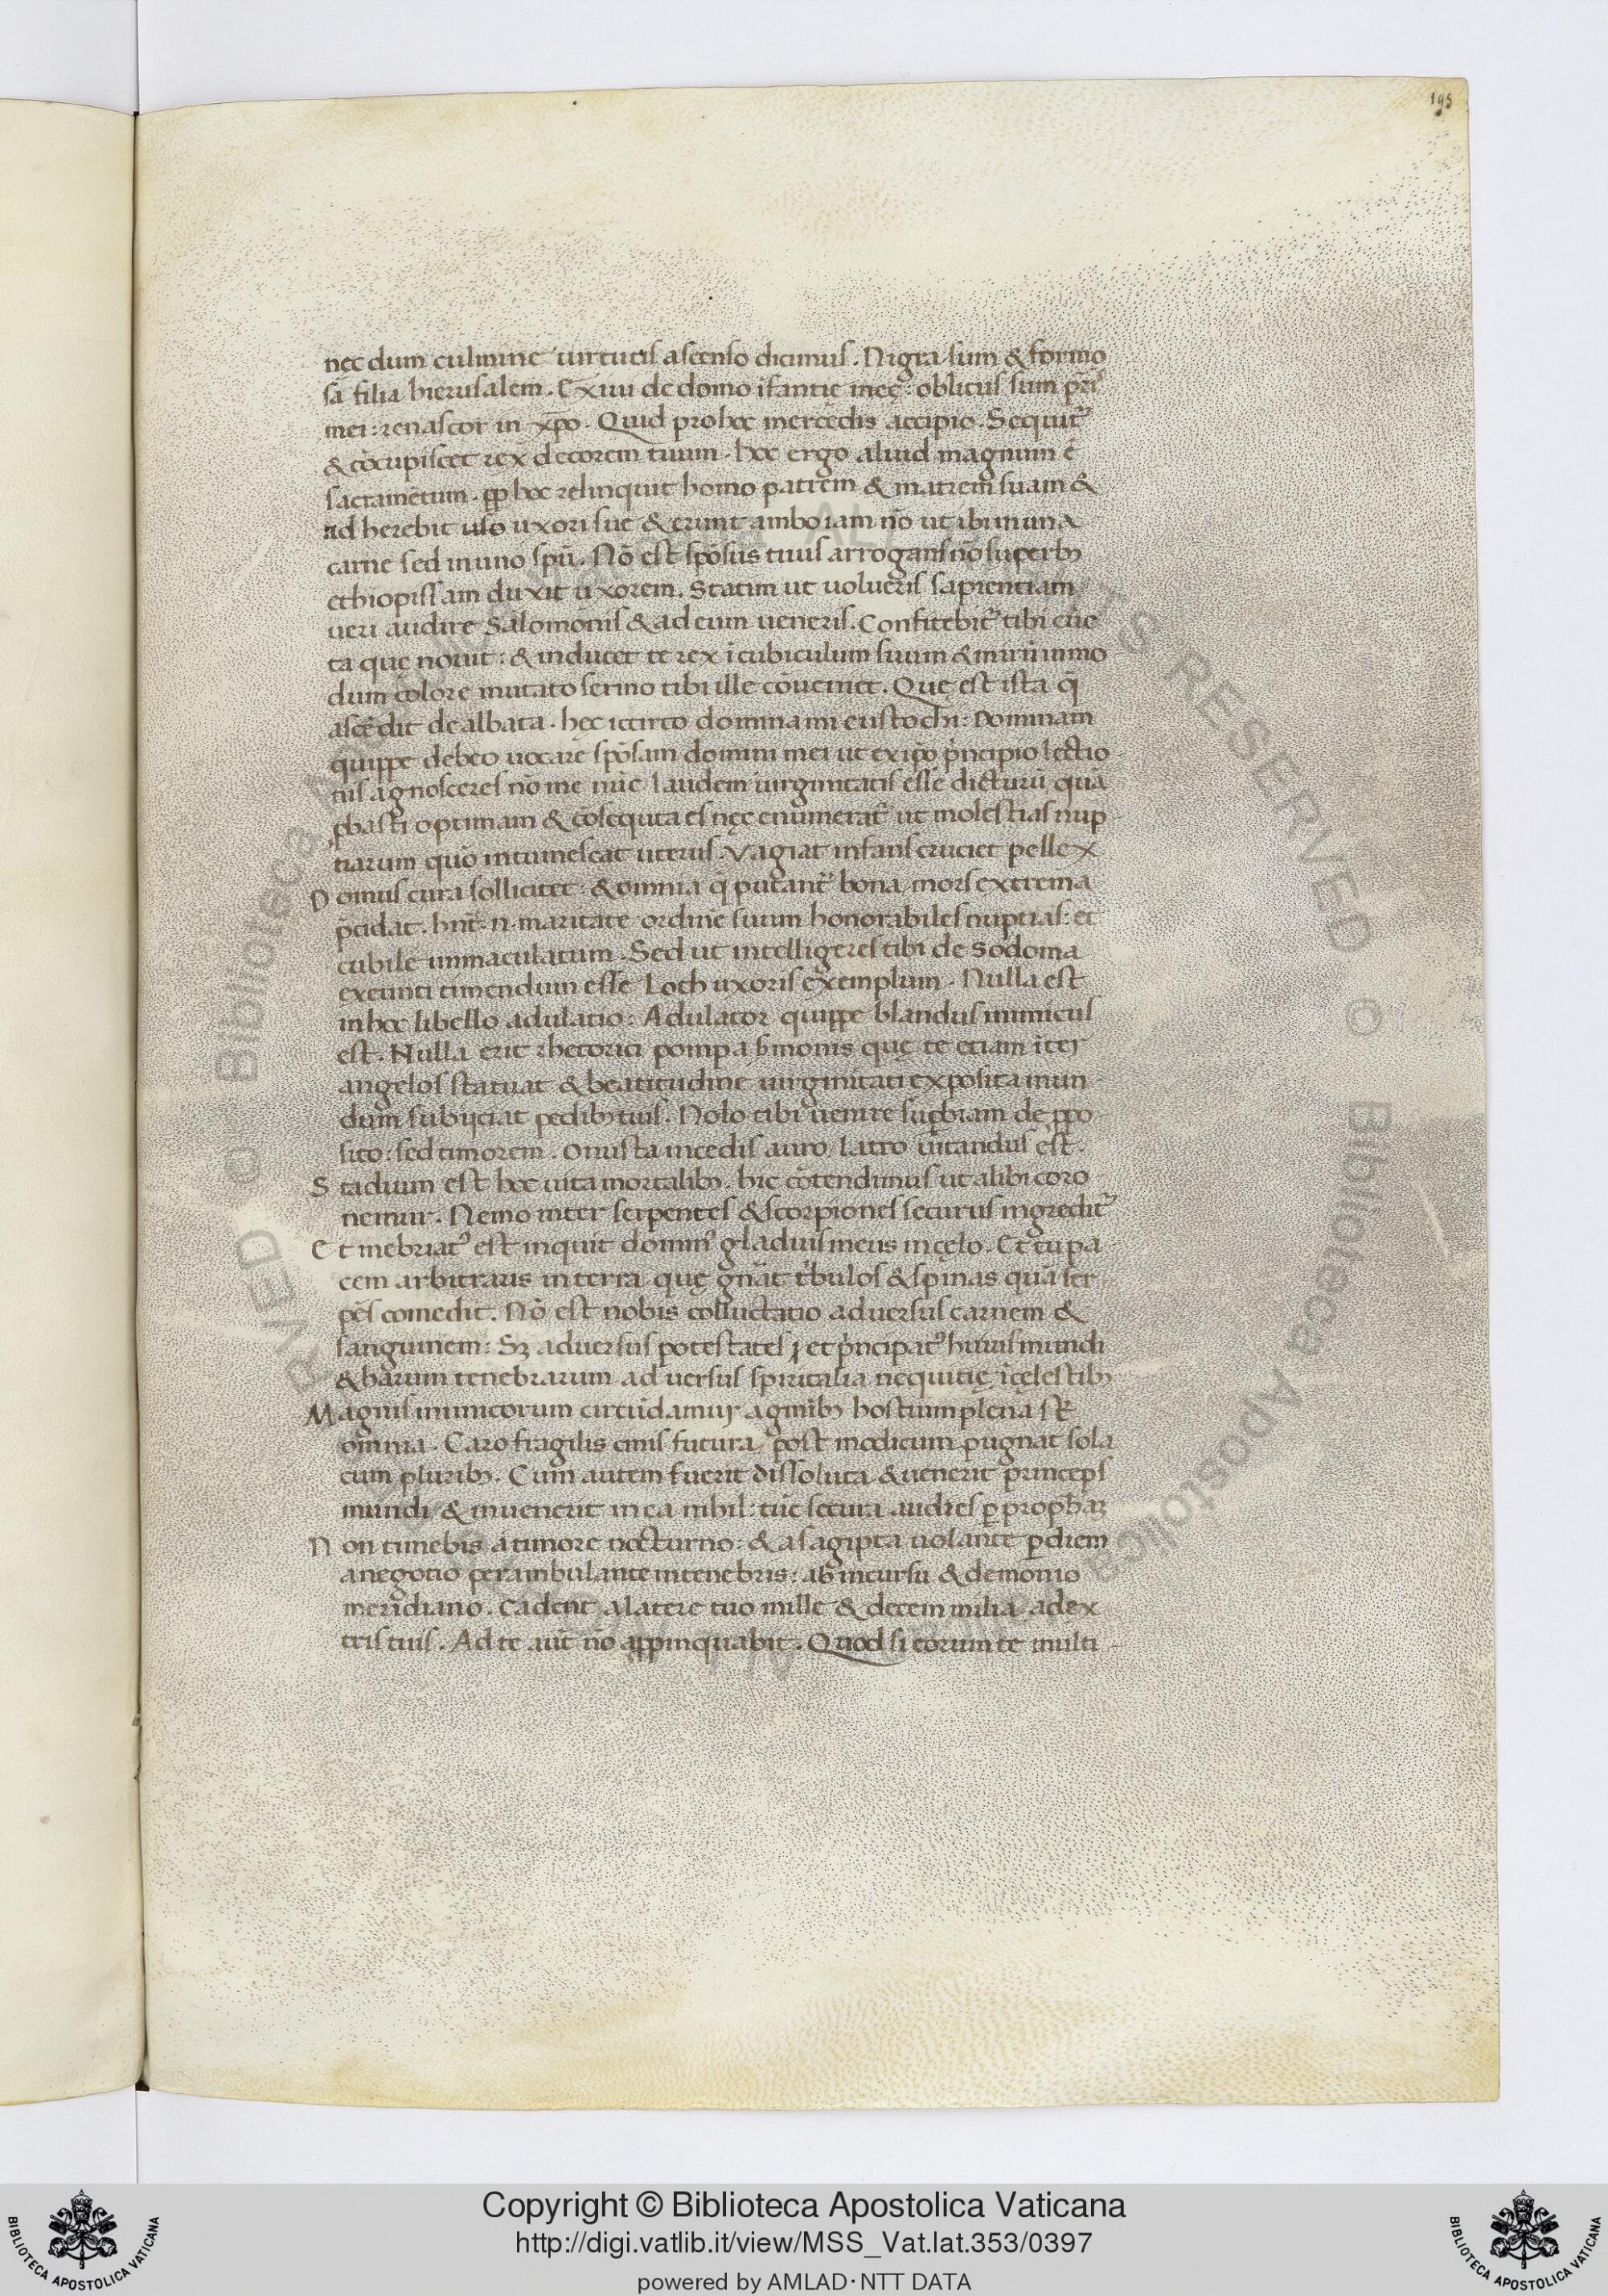 195
nec dum culmine uirtutis ascenso dicimus. Nigra sum & formo
sa filia hierusalem. Exiui de domo ĩfantię meę: oblitus sum pr̃is
mei: renascor in xp̃o. Quid pro hoc mercedis accipio. Sequit᷑
& cõcupiscet rex decorem tuum. hoc ergo aliud magnum ẽ
sacramẽtum. ꝓp hoc relinquit homo patrem & matrem suam &
ad herebit uso uxori sue & erunt ambo iam nõ ut ibi in una
carne sed in uno spũ. Nõ est spõsus tuus arrogans nõ superbꝰ
ethiopissam duxit uxorem. Statim ut uolueris sapientiam
ueri audire Salomonis & ad eum ueneris. Confitebit᷑ tibi cũc
ta quę nouit: & inducet te rex ĩ cubiculum suum & mirũ in mo
dum colore mutato sermo tibi ille cõueniet. Quę est ista q̃
ascẽdit de albata. hęc iccirco domina mi eustochi: Dominam
quippe debeo uocare spõsam domini mei ut ex ip̃o p̃ncipio lectio
nis agnosceres nõ me nũc laudem uirginitatis esse dicturũ quã
ꝓbasti optimam & cõsequta es nęc enumerat᷑ ut molestias nup
tiarum quõ intumescat uterus. Vagiat infans cruciet pellex
Domus cura sollicitet: & omnia q̃ putant᷑ bona mors extrema
p̃cidat. hñt. n. maritatę ordinẽ suum honorabiles nuptias: et
cubile immaculatum. Sed ut intelligeres tibi de sodoma
exeunti timendum esse Loth uxoris exemplum. Nulla est
in hoc libello adulatio: Adulator quippe blandus inimicus
est. Nulla erit rhetorici pompa s̃monis quę te etiam ĩter
angelos statuat & beatitudine uirginitati exposita mun
dum subijciat pedibꝰ tuis. Nolo tibi uenire suꝑbiam de ꝓpo
sito: sed timorem. Onusta incedis auro latro uitandus est.
Stadium est hoc uita mortalibꝰ. hic cõtendimus ut alibi coro
nemur. Nemo inter serpentes & scorpiones securus ingredit᷑
Et inebriatꝰ est inquit dominꝰ gladius meus in cęlo. Et tu pa
cem arbitraris in terra quę gñat t̃bulos & spinas quã ser
pẽs comedit. Nõ est nobis colluctatio aduersus carnem &
sanguinem: Sꝫ aduersus potestates et p̃ncipatꝰ huius mundi
& harum tenebrarum ad uersus spiritalia nequitię ĩ cęlestibꝰ
Magnis inimicorum circũdamur agminibꝰ hostium plena st̃
omnia. Caro fragilis cinis futura post modicum pugnat sola
cum pluribꝰ. Cum autem fuerit dissoluta & uenerit princeps
mundi & inuenerit in ea nihil: tũc secura audies ꝑ prophaꝫ
Non timebis a timore nocturno: & a sagipta uolante ꝑ diem
a negotio perambulante in tenebris: ab incursu & demonio
meridiano. Cadent a latere tuo mille & decem milia a dex
tris tuis. Ad te aut̃ nõ appinquabit. Quod si eorum te multi
Copyright © Biblioteca Apostolica Vaticana
http://digi.vatlib.it/view/MSS_Vat.lat.353/0397
powered by AMLAD·NTT DATA
BIBLIOTECA APOSTOLICA VATICANA
BIBLIOTECA APOSTOLICA VATICANA